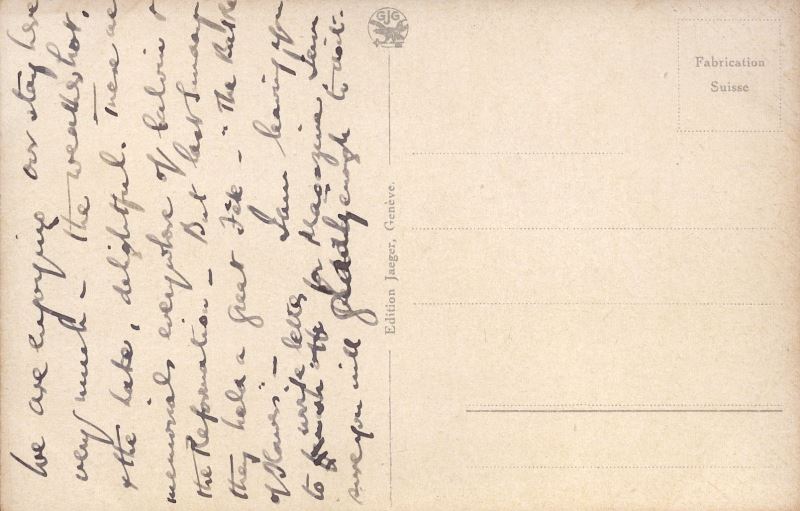 We are enjoying our stay here
very much – The weather hot,
& the lake, delightful. There are
memorials everywhere of Calvin &
the Reformation – But last Sunday
they held a great Fête – "The
of Flowers" – I am leaving you
to write letter for Magazine, I am
sure you will gladly enough to do it.
GJG
Edition Jaeger, Genève.
Fabrication
Suisse